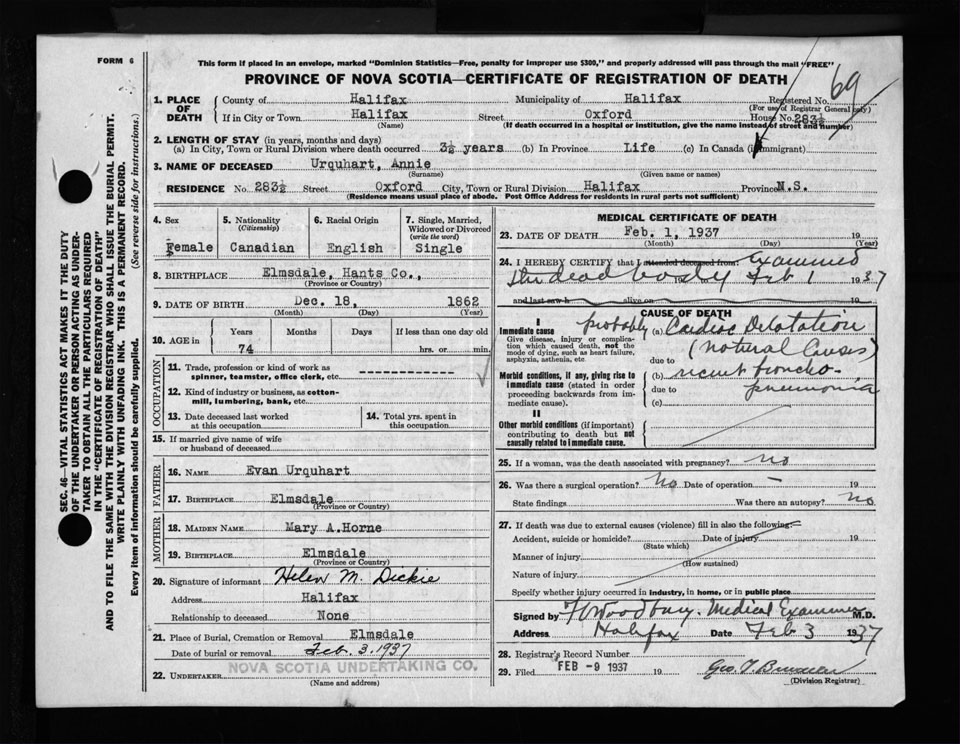 FORM 6
This form if placed in an envelope, marked "Dominion Statistics—Free, penalty for improper use $300," and properly addressed will pass through the mail "FREE"
PROVINCE OF NOVA SCOTIA—CERTIFICATE OF REGISTRATION OF DEATH
69
SEC. 46—VITAL STATISTICS ACT MAKES IT THE DUTY
OF THE UNDERTAKER OR PERSON ACTING AS UNDER-
TAKER TO OBTAIN ALL THE PARTICULARS REQUIRED
IN THE "CERTIFICATE OF REGISTRATION OF DEATH"
AND TO FILE THE SAME WITH THE DIVISION REGISTRAR WHO SHALL ISSUE THE BURIAL PERMIT.
WRITE PLAINLY WITH UNFADING INK. THIS IS A PERMANENT RECORD.
Every item of information should be carefully supplied. (See reverse side for instructions.)
1. PLACE OF DEATH County of Halifax Municipality of Halifax Registered No.
(For use of Registrar General only)
If in City or Town Halifax Street Oxford House No. 283½
(Name) (If death occurred in a hospital or institution, give the name instead of street and number)
2. LENGTH OF STAY (in years, months and days)
(a) In City, Town or Rural Division where death occurred 3½ years (b) In Province Life (c) In Canada (if immigrant)
3. NAME OF DECEASED Urquhart, Annie
(Surname) (Given name or names)
RESIDENCE No. 283½ Street Oxford City, Town or Rural Division Halifax Province N.S.
(Residence means usual place of abode. Post Office Address for residents in rural parts not sufficient)
4. Sex Female
5. Nationality (Citizenship) Canadian
6. Racial Origin English
7. Single, Married, Widowed or Divorced (write the word) Single
8. BIRTHPLACE Elmsdale, Hants Co.,
(Province or Country)
9. DATE OF BIRTH Dec. 18, 1862
(Month) (Day) (Year)
10. AGE in Years 74 Months Days If less than one day old hrs. or min.
OCCUPATION
11. Trade, profession or kind of work as spinner, teamster, office clerk, etc. -------------
12. Kind of industry or business, as cotton-mill, lumbering, bank, etc.
13. Date deceased last worked at this occupation
14. Total yrs. spent in this occupation
15. If married give name of wife or husband of deceased
FATHER
16. NAME Evan Urquhart
17. BIRTHPLACE Elmsdale
(Province or Country)
MOTHER
18. MAIDEN NAME Mary A.Horne
19. BIRTHPLACE Elmsdale
(Province or Country)
20. Signature of informant Helen M. Dickie
Address Halifax
Relationship to deceased None
21. Place of Burial, Cremation or Removal Elmsdale
Date of burial or removal Feb. 3. 1937
NOVA SCOTIA UNDERTAKING CO.
22. UNDERTAKER
(Name and address)
MEDICAL CERTIFICATE OF DEATH
23. DATE OF DEATH Feb. 1, 1937 19
(Month) (Day) (Year)
24. I HEREBY CERTIFY that I attended deceased from: Examined
the dead body Feb 1 1937
and last saw h alive on 19
CAUSE OF DEATH
I
Immediate cause
Give disease, injury or complication which caused death, not the mode of dying, such as heart failure, asphyxia, asthenia, etc.
probably (a) Cardiac Dilatation
(Natural Causes)
due to
Morbid conditions, if any, giving rise to immediate cause (stated in order proceeding backwards from immediate cause).
(b) recent broncho-
due to pneumonia
(c)
II
Other morbid conditions (if important) contributing to death but not causally related to immediate cause.
25. If a woman, was the death associated with pregnancy? no
26. Was there a surgical operation? no Date of operation - 19
State findings Was there an autopsy? no
27. If death was due to external causes (violence) fill in also the following:—
Accident, suicide or homicide? Date of injury 19
(State which)
Manner of injury
(How sustained)
Nature of injury
Specify whether injury occurred in industry, in home, or in public place
Signed by Woodbury. Medical Examiner M.D.
Address Halifax Date Feb 3 1937
28. Registrar's Record Number
29. Filed FEB -9 1937 19
(Division Registrar)